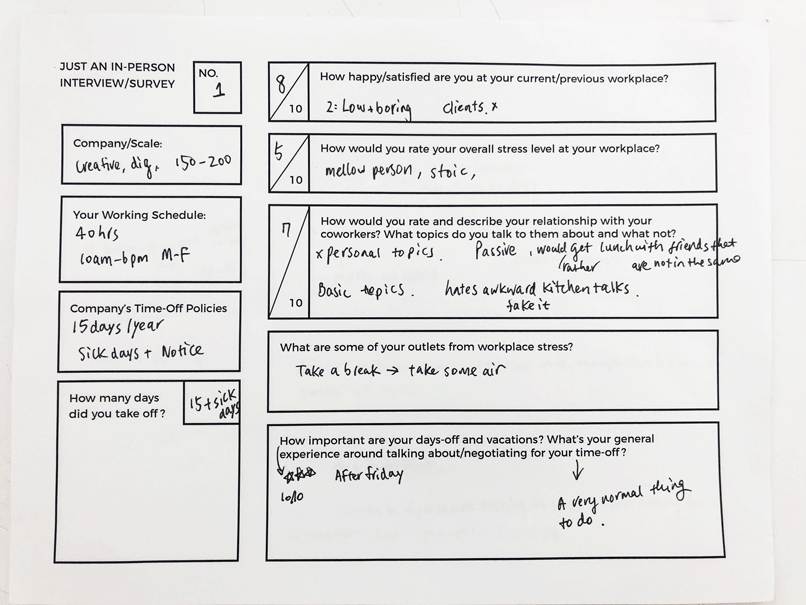 JUST AN IN-PERSON
INTERVIEW/SURVEY
NO.
1
Company/Scale:
Creative, dig, 150-200
Your Working Schedule:
40hrs
10am-6pm M-F
Company's Time-Off Policies
15days/year
Sick days + Notice
How many days
did you take off?
15+sick
days
8/10
How happy/satisfied are you at your current/previous workplace?
2: Low+boring clients. x
5/10
How would you rate your overall stress level at your workplace?
mellow person, stoic,
7/10
How would you rate and describe your relationship with your
coworkers? What topics do you talk to them about and what not?
x personal topics. Passive, would get lunch with friends that
rather are not in the same
Basic topics. hates awkward kitchen talks.
fake it
What are some of your outlets from workplace stress?
Take a break → take some air
How important are your days-off and vacations? What's your general
experience around talking about/negotiating for your time-off?
After friday
10/10
A very normal thing
to do.